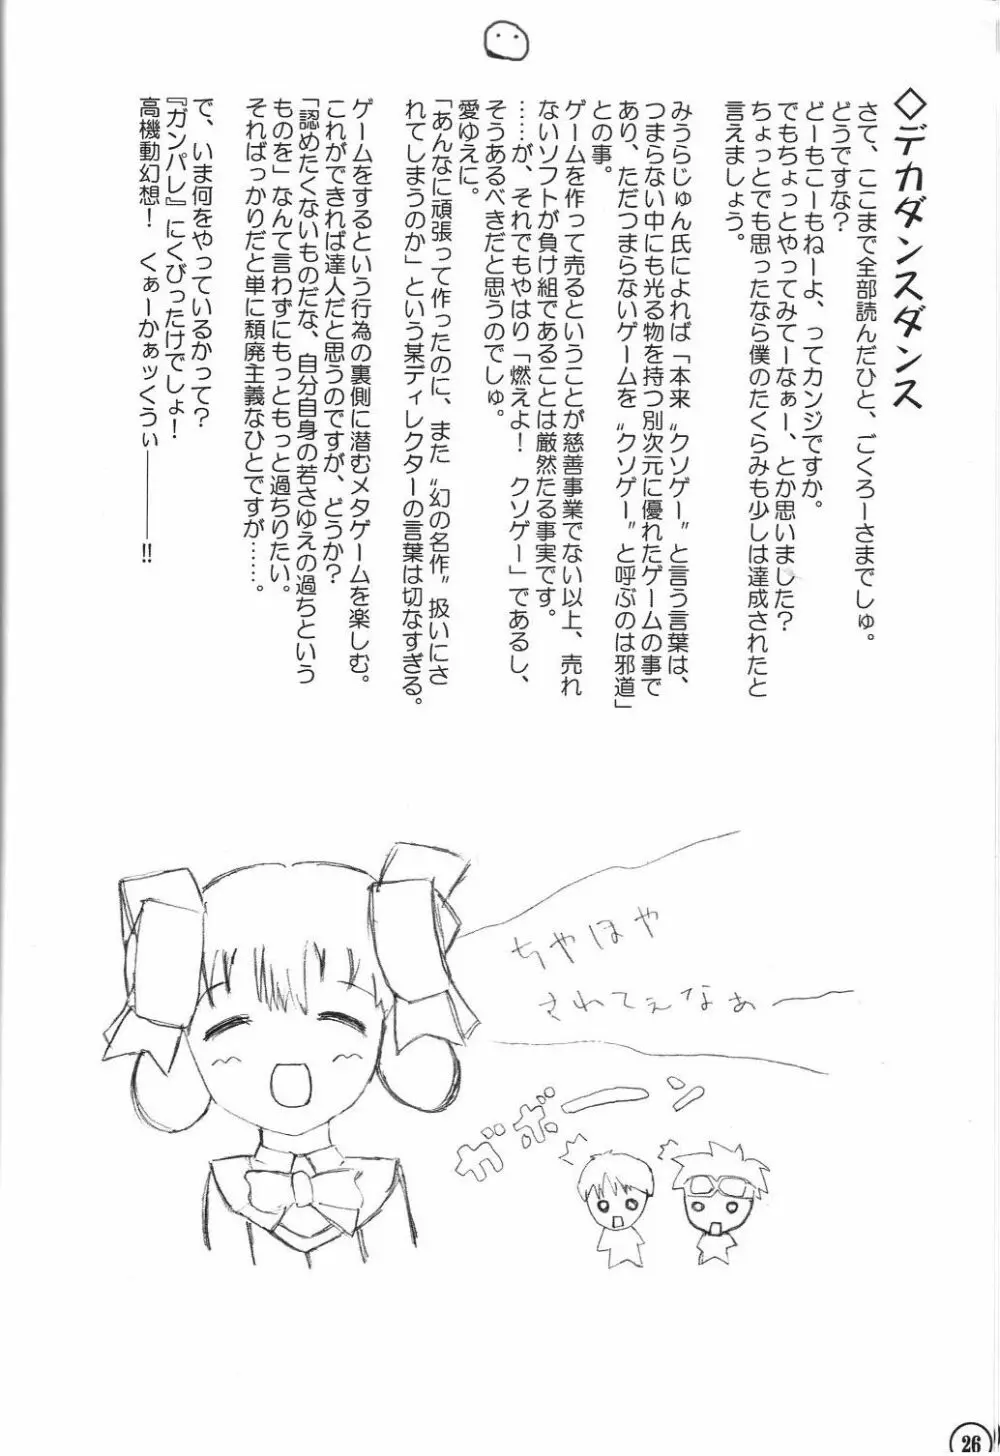 ◇デカダンスダンス
さて、ここまで全部読んだひと、ごくろーさまでしゅ。
どうですな？
どーもこーもねーよ、ってカンジですか。
でもちょっとやってみてーなぁー、とか思いました？
ちょっとでも思ったなら僕のたくらみも少しは達成されたと
言えましょう。
みうらじゅん氏によれば「本来〝クソゲー〟と言う言葉は、
つまらない中にも光る物を持つ別次元に優れたゲームの事で
あり、ただつまらないゲームを〝クソゲー〟と呼ぶのは邪道」
との事。
ゲームを作って売るということが慈善事業でない以上、売れ
ないソフトが負け組であることは厳然たる事実です。
……が、それでもやはり「燃えよ！　クソゲー」であるし、
そうあるべきだと思うのでしゅ。
愛ゆえに。
「あんなに頑張って作ったのに、また〝幻の名作〟扱いにさ
れてしまうのか」という某ディレクターの言葉は切なすぎる。
ゲームをするという行為の裏側に潜むメタゲームを楽しむ。
これができれば達人だと思うのですが、どうか？
「認めたくないものだな、自分自身の若さゆえの過ちという
ものを」なんて言わずにもっともっと過ちりたい。
そればっかりだと単に頽廃主義なひとですが……。
で、いま何をやっているかって？
『ガンパレ』にくびったけでしょ！
高機動幻想！　くぁーかぁッくうぃ―――!!
ちやほや
されてぇなぁ――
ガボーン
26